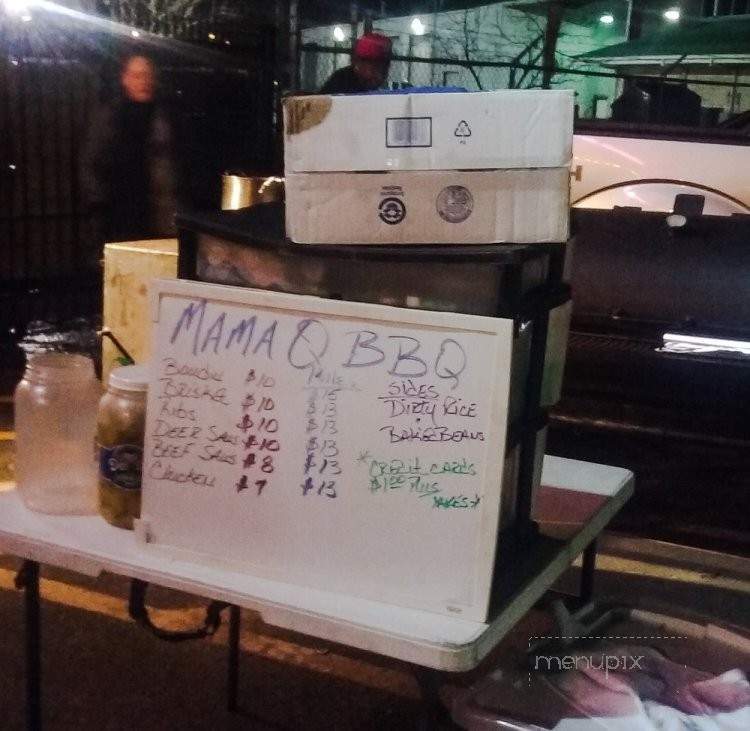 MAMA Q BBQ
Boudin $10
Briske $10 $15
Ribs $10 $13
DEER SAUS $10 $13
BEEF SAUS $8 $13
Chicken $7 $13
SIDES
DIRTY RICE
BAKE BEANS
*CREDIT CARDS
$1.00 Plus
menupix